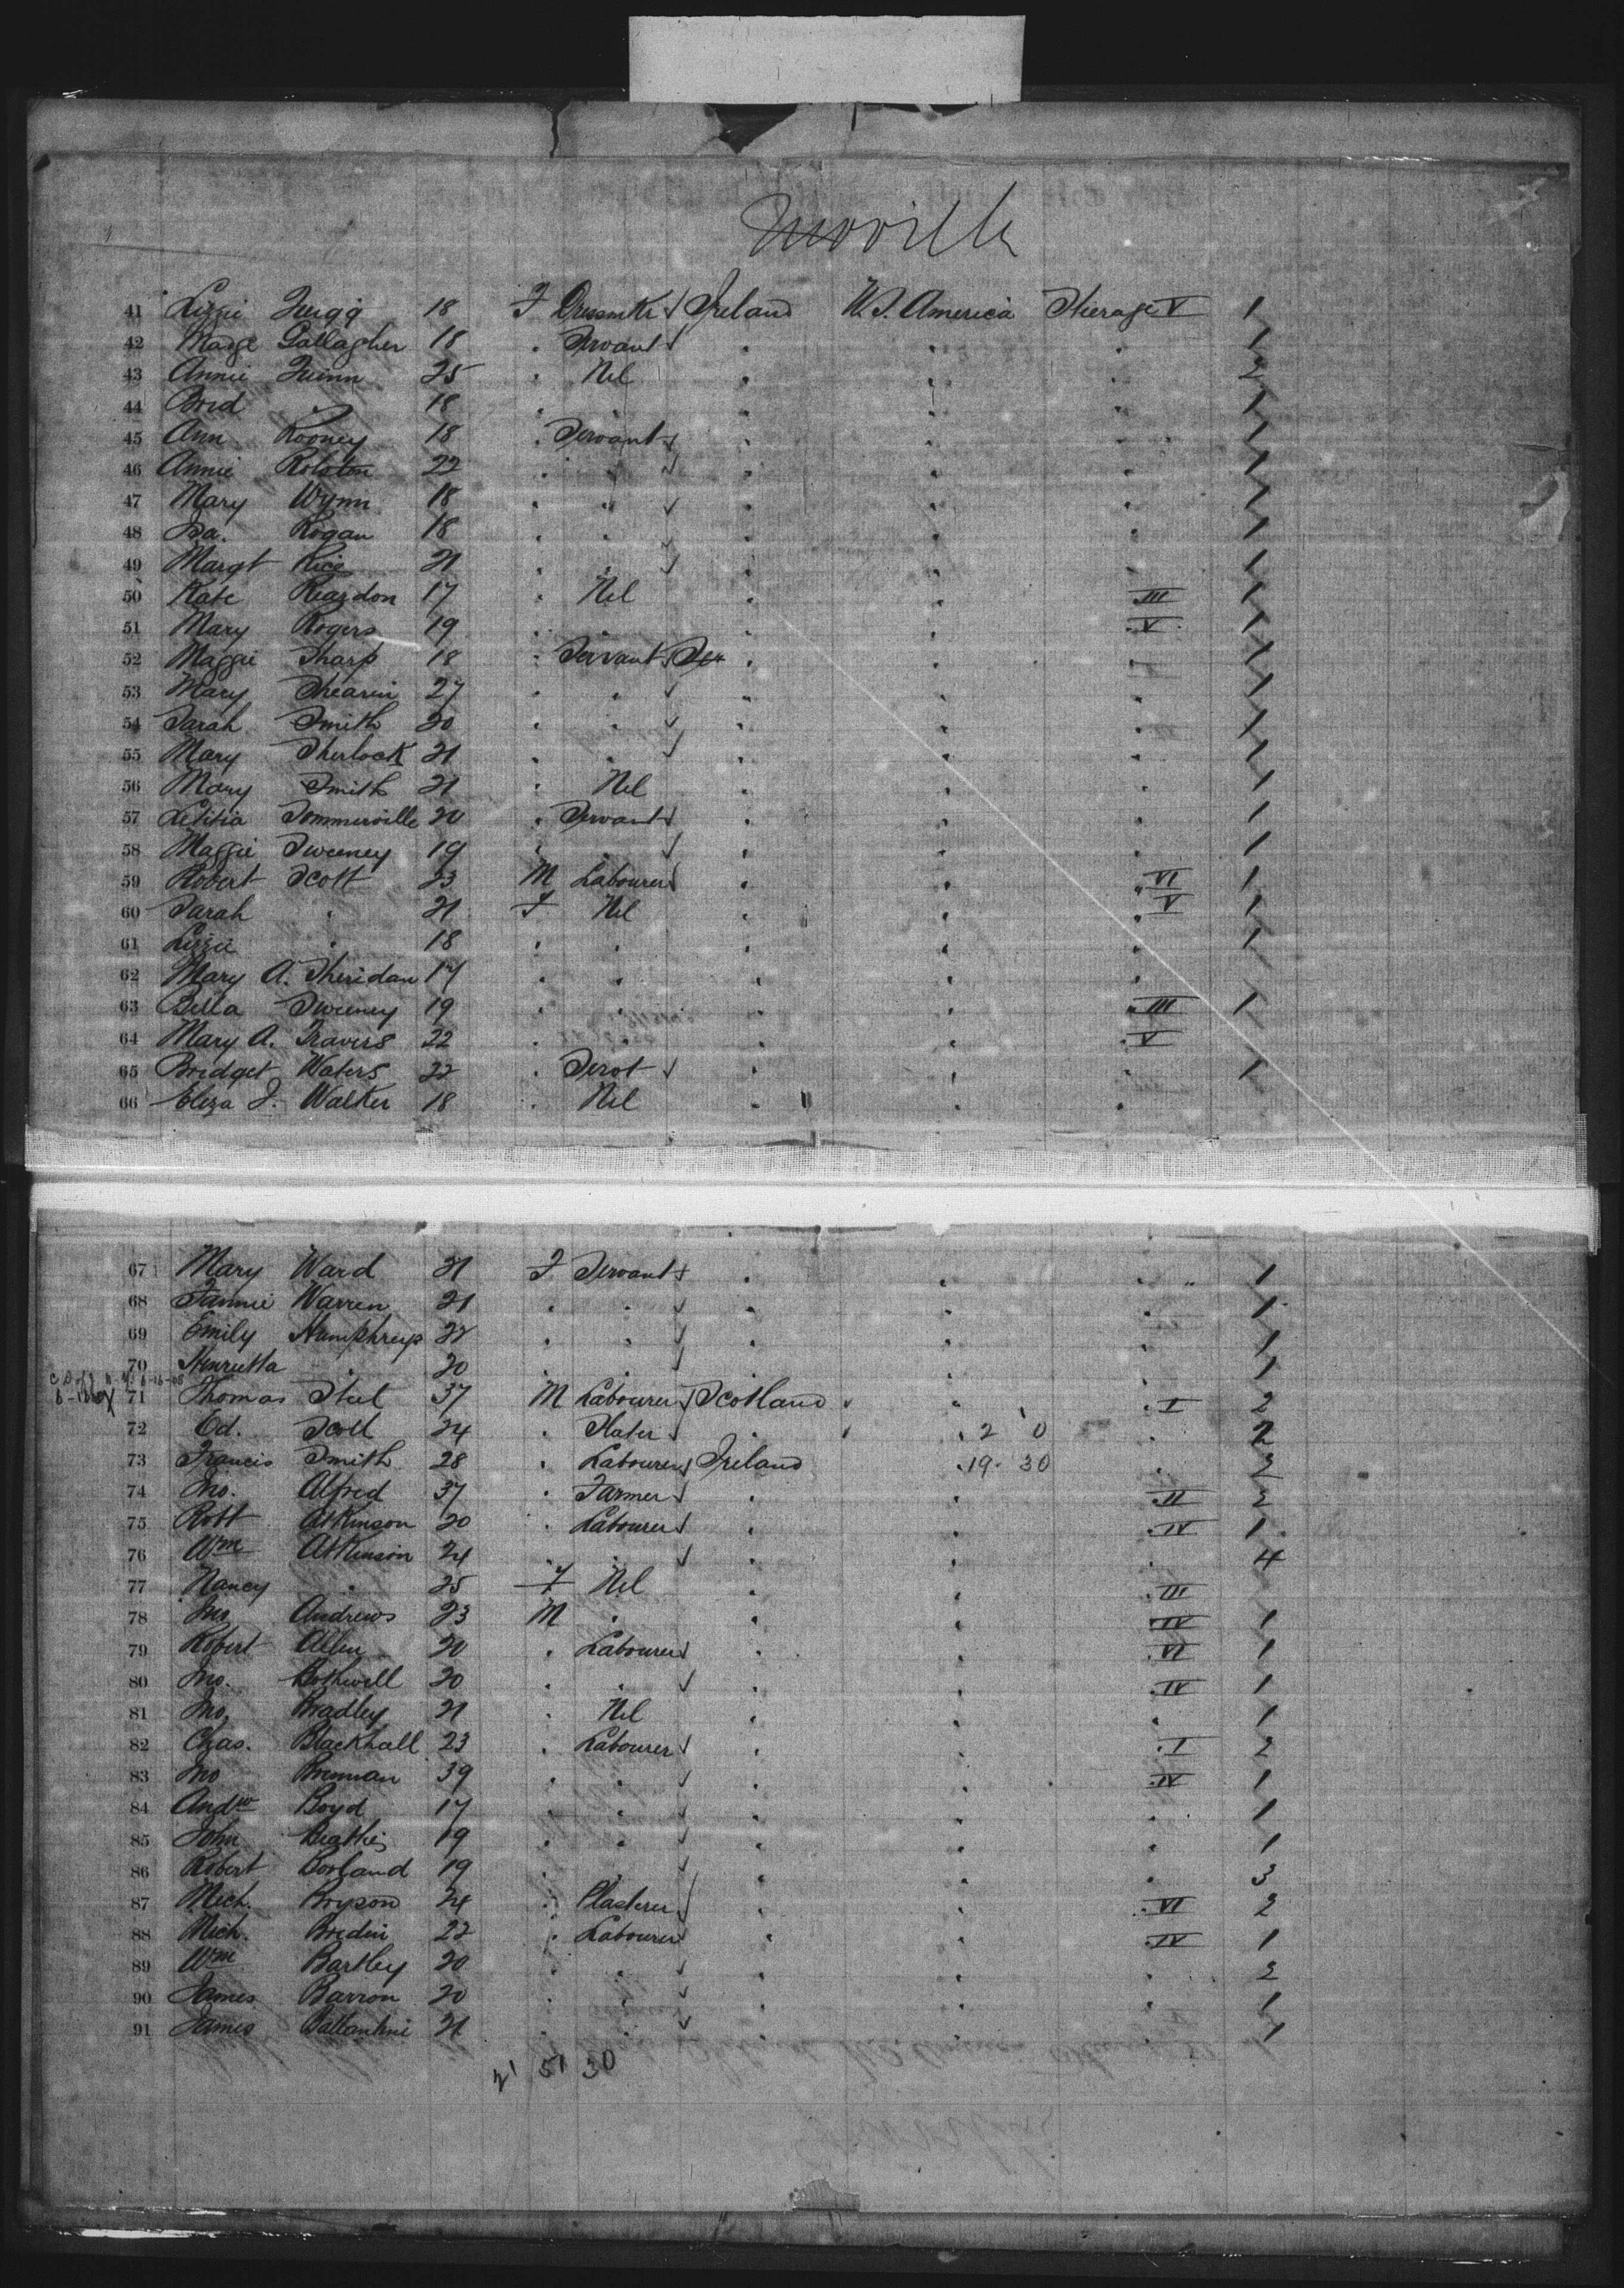 Moville
41 Lizzie Quigg 18 F Dressmkr Ireland U.S. America Steerage V 1
42 Madge Gallagher 18 " Servant " " " 1
43 Annie Quinn 25 " Nil " " " 2
44 Brid " 18 " " " " " 1
45 Ann Rooney 18 " Servant " " " 1
46 Annie Rolston 22 " " " " " 1
47 Mary Wynn 18 " " " " " 1
48 Isa. Rogan 18 " " " " " 1
49 Margt Rice 21 " " " " " 1
50 Kate Reardon 17 " Nil " " " III 1
51 Mary Rogers 19 " " " " " V 1
52 Maggie Sharp 18 " Servant " " " 1
53 Mary Shearin 27 " " " " " 1
54 Sarah Smith 20 " " " " " 1
55 Mary Sherlock 21 " " " " " 1
56 Mary Smith 21 " Nil " " " 1
57 Letitia Sommerville 20 " Servant " " " 1
58 Maggie Sweeney 19 " " " " " 1
59 Robert Scott 23 M Labourer " " " VI 1
60 Sarah " 21 F Nil " " " V 1
61 Lizzie " 18 " " " " " 1
62 Mary A. Sheridan 17 " " " " "
63 Bella Sweeney 19 " " " " " III 1
64 Mary A. Travers 22 " " " " " V
65 Bridget Waters 22 " Servt " " " 1
66 Eliza J. Walker 18 " Nil " " "
67 Mary Ward 21 F Servant " " " " 1
68 Fannie Warren 21 " " " " " 1
69 Emily Humphreys 22 " " " " " 1
70 Henrietta " 20 " " " " " 1
71 Thomas Steel 37 M Labourer Scotland " " " I 2
72 Ed. Scott 24 " Slater " " " 2 0 " 2
73 Francis Smith 28 " Labourer Ireland " 19 30 " 2
74 Jno. Alfred 37 " Farmer " " " II 2
75 Robt Atkinson 20 " Labourer " " " IV 1
76 Wm Atkinson 24 " " " " " 4
77 Nancy " 25 F Nil " " " III
78 Jno Andrews 23 M " " " " IV 1
79 Robert Allen 20 " Labourer " " " VI 1
80 Jno. Bothwell 20 " " " " " IV 1
81 Jno. Bradley 21 " Nil " " " 1
82 Chas. Blackhall 23 " Labourer " " " I 2
83 Jno Brennan 39 " " " " " IV 1
84 Andw Boyd 17 " " " " " 1
85 John Beattie 19 " " " " " 1
86 Robert Borland 19 " " " " " 3
87 Mich. Bryson 24 " Plasterer " " " VI 2
88 Mich. Bredin 22 " Labourer " " " IV 1
89 Wm Bartley 20 " " " " " 2
90 James Barron 20 " " " " " 1
91 James Ballantine 21 " " " " " 1
21 51 30